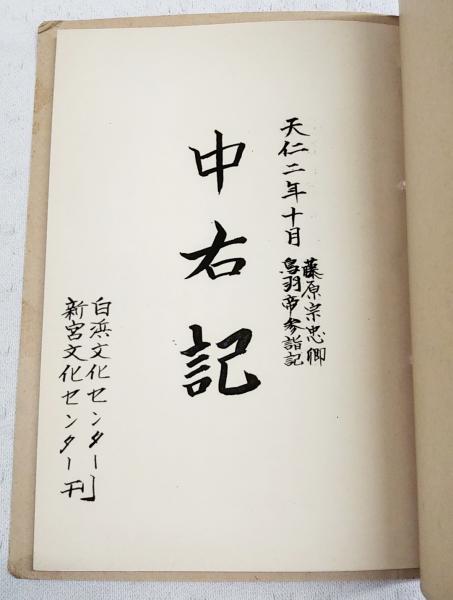 天仁二年十月
藤原宗忠卿
鳥羽帝参詣記
中右記
白浜文化センター
新宮文化センター刊